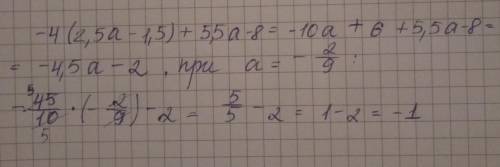 -4(2,5a - 1,5) + 5,5a - 8 = -10a + 6 + 5,5a - 8 =
= -4,5a - 2 , при a = -2/9 :
-45/10 · (-2/9) - 2 = 5/5 - 2 = 1 - 2 = -1
5